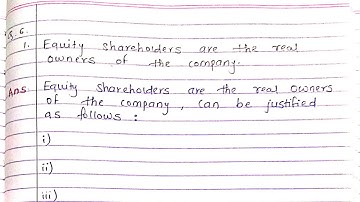 Q.6.
1. Equity shareholders are the real
owners of the company.
Ans Equity shareholders are the real owners
of the company, can be justified
as follows :
i)
ii)
iii)